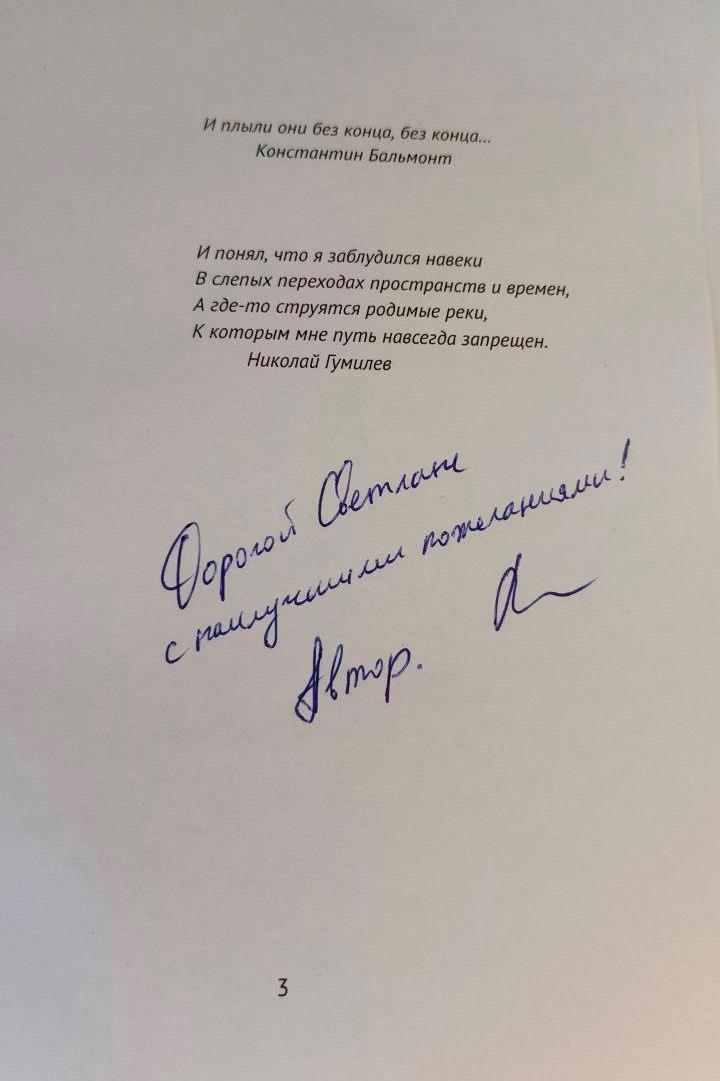 И плыли они без конца, без конца...
Константин Бальмонт
И понял, что я заблудился навеки
В слепых переходах пространств и времен,
А где-то струятся родимые реки,
К которым мне путь навсегда запрещен.
Николай Гумилев
Дорогой Светлане
с наилучшими пожеланиями!
Автор.
3